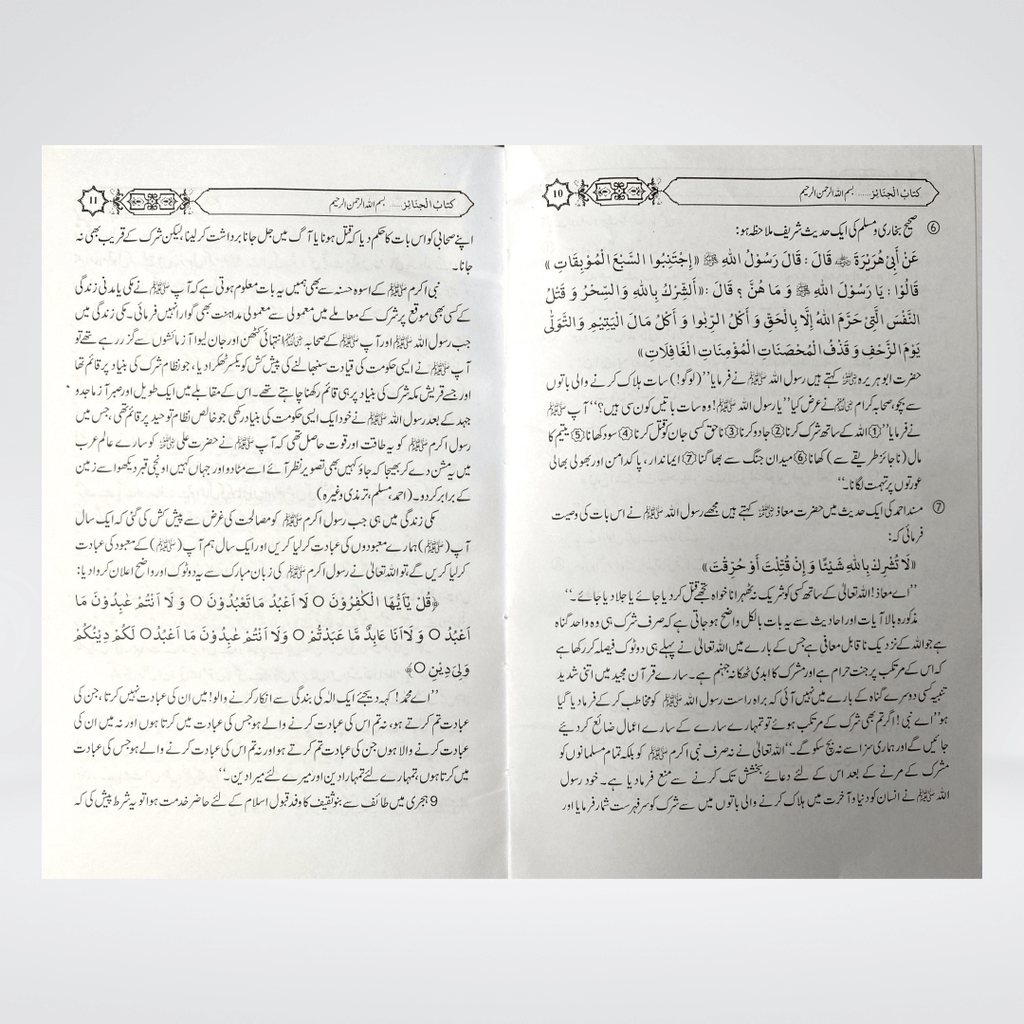 كتاب الجنائز..... بسم اللہ الرحمن الرحیم
10
⑥ صحیح بخاری و مسلم کی ایک حدیث شریف ملاحظہ ہو:
عَنْ أَبِیْ هُرَیْرَةَ ﷺ قَالَ : قَالَ رَسُوْلُ اللّٰهِ ﷺ «إِجْتَنِبُوا السَّبْعَ الْمُوْبِقَاتِ»
قَالُوْا : یَا رَسُوْلَ اللّٰهِ ﷺ وَ مَا هُنَّ ؟ قَالَ :«أَلشِّرْكُ بِاللّٰهِ وَ السِّحْرُ وَ قَتْلُ
النَّفْسِ الَّتِیْ حَرَّمَ اللّٰهُ إِلَّا بِالْحَقِّ وَ أَكْلُ الرِّبٰوا وَ أَكْلُ مَالَ الْیَتِیْمِ وَ التَّوَلّٰی
یَوْمَ الزَّحْفِ وَ قَذْفُ الْمُحْصَنَاتِ الْمُؤْمِنَاتِ الْغَافِلَاتِ»
حضرت ابو ہریرہ رضی اللہ عنہ کہتے ہیں رسول اللہ ﷺ نے فرمایا ’’(لوگو!) سات ہلاک کرنے والی باتوں
سے بچو، صحابہ کرام نے عرض کیا ’’یا رسول اللہ ﷺ! وہ سات باتیں کون سی ہیں؟‘‘ آپ ﷺ
نے فرمایا ’’① اللہ کے ساتھ شرک کرنا ② جادو کرنا ③ ناحق کسی جان کو قتل کرنا ④ سود کھانا ⑤ یتیم کا
مال (ناجائز طریقے سے) کھانا ⑥ میدان جنگ سے بھاگنا ⑦ ایماندار، پاکدامن اور بھولی بھالی
عورتوں پر تہمت لگانا۔‘‘
⑦ مسند احمد کی ایک حدیث میں حضرت معاذ رضی اللہ عنہ کہتے ہیں مجھے رسول اللہ ﷺ نے اس بات کی وصیت
فرمائی کہ:
«لَا تُشْرِكْ بِاللّٰهِ شَیْئًا وَ إِنْ قُتِلْتَ أَوْ حُرِّقْتَ»
’’اے معاذ! اللہ تعالیٰ کے ساتھ کسی کو شریک نہ ٹھہرانا خواہ تجھے قتل کر دیا جائے یا جلا دیا جائے۔‘‘
مذکورہ بالا آیات اور احادیث سے یہ بات بالکل واضح ہو جاتی ہے کہ صرف شرک ہی وہ واحد گناہ
ہے جو اللہ کے نزدیک ناقابل معافی ہے جس کے بارے میں اللہ تعالیٰ نے پہلے ہی دو ٹوک فیصلہ کر رکھا ہے
کہ اس کے مرتکب پر جنت حرام ہے اور مشرک کا ابدی ٹھکانہ جہنم ہے۔ سارے قرآن مجید میں اتنی شدید
تنبیہ کسی دوسرے گناہ کے بارے میں نہیں آئی کہ براہ راست رسول اللہ ﷺ کو مخاطب کر کے فرمادیا گیا
ہو ’’اے نبی! اگر تم بھی شرک کے مرتکب ہوئے تو تمہارے سارے کے سارے اعمال ضائع کر دیئے
جائیں گے اور ہماری سزا سے نہ بچ سکو گے۔‘‘ اللہ تعالیٰ نے نہ صرف نبی اکرم ﷺ کو بلکہ تمام مسلمانوں کو
مشرک کے مرنے کے بعد اس کے لئے دعائے بخشش تک کرنے سے منع فرما دیا ہے۔ خود رسول
اللہ ﷺ نے انسان کو دنیا و آخرت میں ہلاک کرنے والی باتوں میں سے شرک کو سرفہرست شمار فرمایا اور
كتاب الجنائز..... بسم اللہ الرحمن الرحیم
11
اپنے صحابی کو اس بات کا حکم دیا کہ قتل ہونا یا آگ میں جل جانا برداشت کر لینا، لیکن شرک کے قریب بھی نہ
جانا۔
نبی اکرم ﷺ کے اسوہ حسنہ سے بھی ہمیں یہ بات معلوم ہوتی ہے کہ آپ ﷺ نے مکی یا مدنی زندگی
کے کسی بھی موقع پر شرک کے معاملے میں معمولی سے معمولی مداہنت بھی گوارا نہیں فرمائی۔ مکی زندگی میں
جب رسول اللہ ﷺ اور آپ ﷺ کے صحابہ انتہائی کٹھن اور جان لیوا آزمائشوں سے گزر رہے تھے تو
آپ ﷺ نے ایسی حکومت کی قیادت سنبھالنے کی پیش کش کو یکسر ٹھکرا دیا، جو نظام شرک کی بنیاد پر قائم تھا
اور جسے قریش مکہ شرک کی بنیاد پر ہی قائم رکھنا چاہتے تھے۔ اس کے مقابلے میں ایک طویل اور صبر آزما جدو
جہد کے بعد رسول اللہ ﷺ نے خود ایک ایسی حکومت کی بنیاد رکھی جو خالص نظام توحید پر قائم تھی، جس میں
رسول اکرم ﷺ کو یہ طاقت اور قوت حاصل تھی کہ آپ ﷺ نے حضرت علی رضی اللہ عنہ کو سارے عالم عرب
میں یہ مشن دے کر بھیجا کہ جاؤ کہیں بھی تصویر نظر آئے اسے مٹا دو اور جہاں کہیں اونچی قبر دیکھو اسے زمین
کے برابر کردو۔ (احمد، مسلم، ترمذی وغیرہ)
مکی زندگی میں ہی جب رسول اکرم ﷺ کو مصالحت کی غرض سے پیش کش کی گئی کہ ایک سال
آپ (ﷺ) ہمارے معبودوں کی عبادت کر لیا کریں اور ایک سال ہم آپ (ﷺ) کے معبود کی عبادت
کر لیا کریں گے، تو اللہ تعالیٰ نے رسول اکرم ﷺ کی زبان مبارک سے یہ دو ٹوک اور واضح اعلان کروا دیا:
﴿قُلْ یٰۤاَیُّهَا الْكٰفِرُوْنَ ○ لَاۤ اَعْبُدُ مَا تَعْبُدُوْنَ ○ وَ لَاۤ اَنْتُمْ عٰبِدُوْنَ مَاۤ
اَعْبُدُ ○ وَ لَاۤ اَنَا عَابِدٌ مَّا عَبَدْتُّمْ ○ وَ لَاۤ اَنْتُمْ عٰبِدُوْنَ مَاۤ اَعْبُدُ ○ لَكُمْ دِیْنُكُمْ
وَلِیَ دِیْنِ ○﴾
’’اے محمد! کہہ دیجئے ایک الٰہ کی بندگی سے انکار کرنے والو! میں ان کی عبادت نہیں کرتا، جن کی
عبادت تم کرتے ہو، نہ تم اس کی عبادت کرنے والے ہو جس کی عبادت میں کرتا ہوں اور نہ میں ان کی
عبادت کرنے والا ہوں جن کی عبادت تم کرتے ہو اور نہ تم اس کی عبادت کرنے والے ہو جس کی عبادت
میں کرتا ہوں، تمہارے لئے تمہارا دین اور میرے لئے میرا دین۔‘‘
9 ہجری میں طائف سے بنو ثقیف کا وفد قبول اسلام کے لئے حاضر خدمت ہوا تو یہ شرط پیش کی کہ